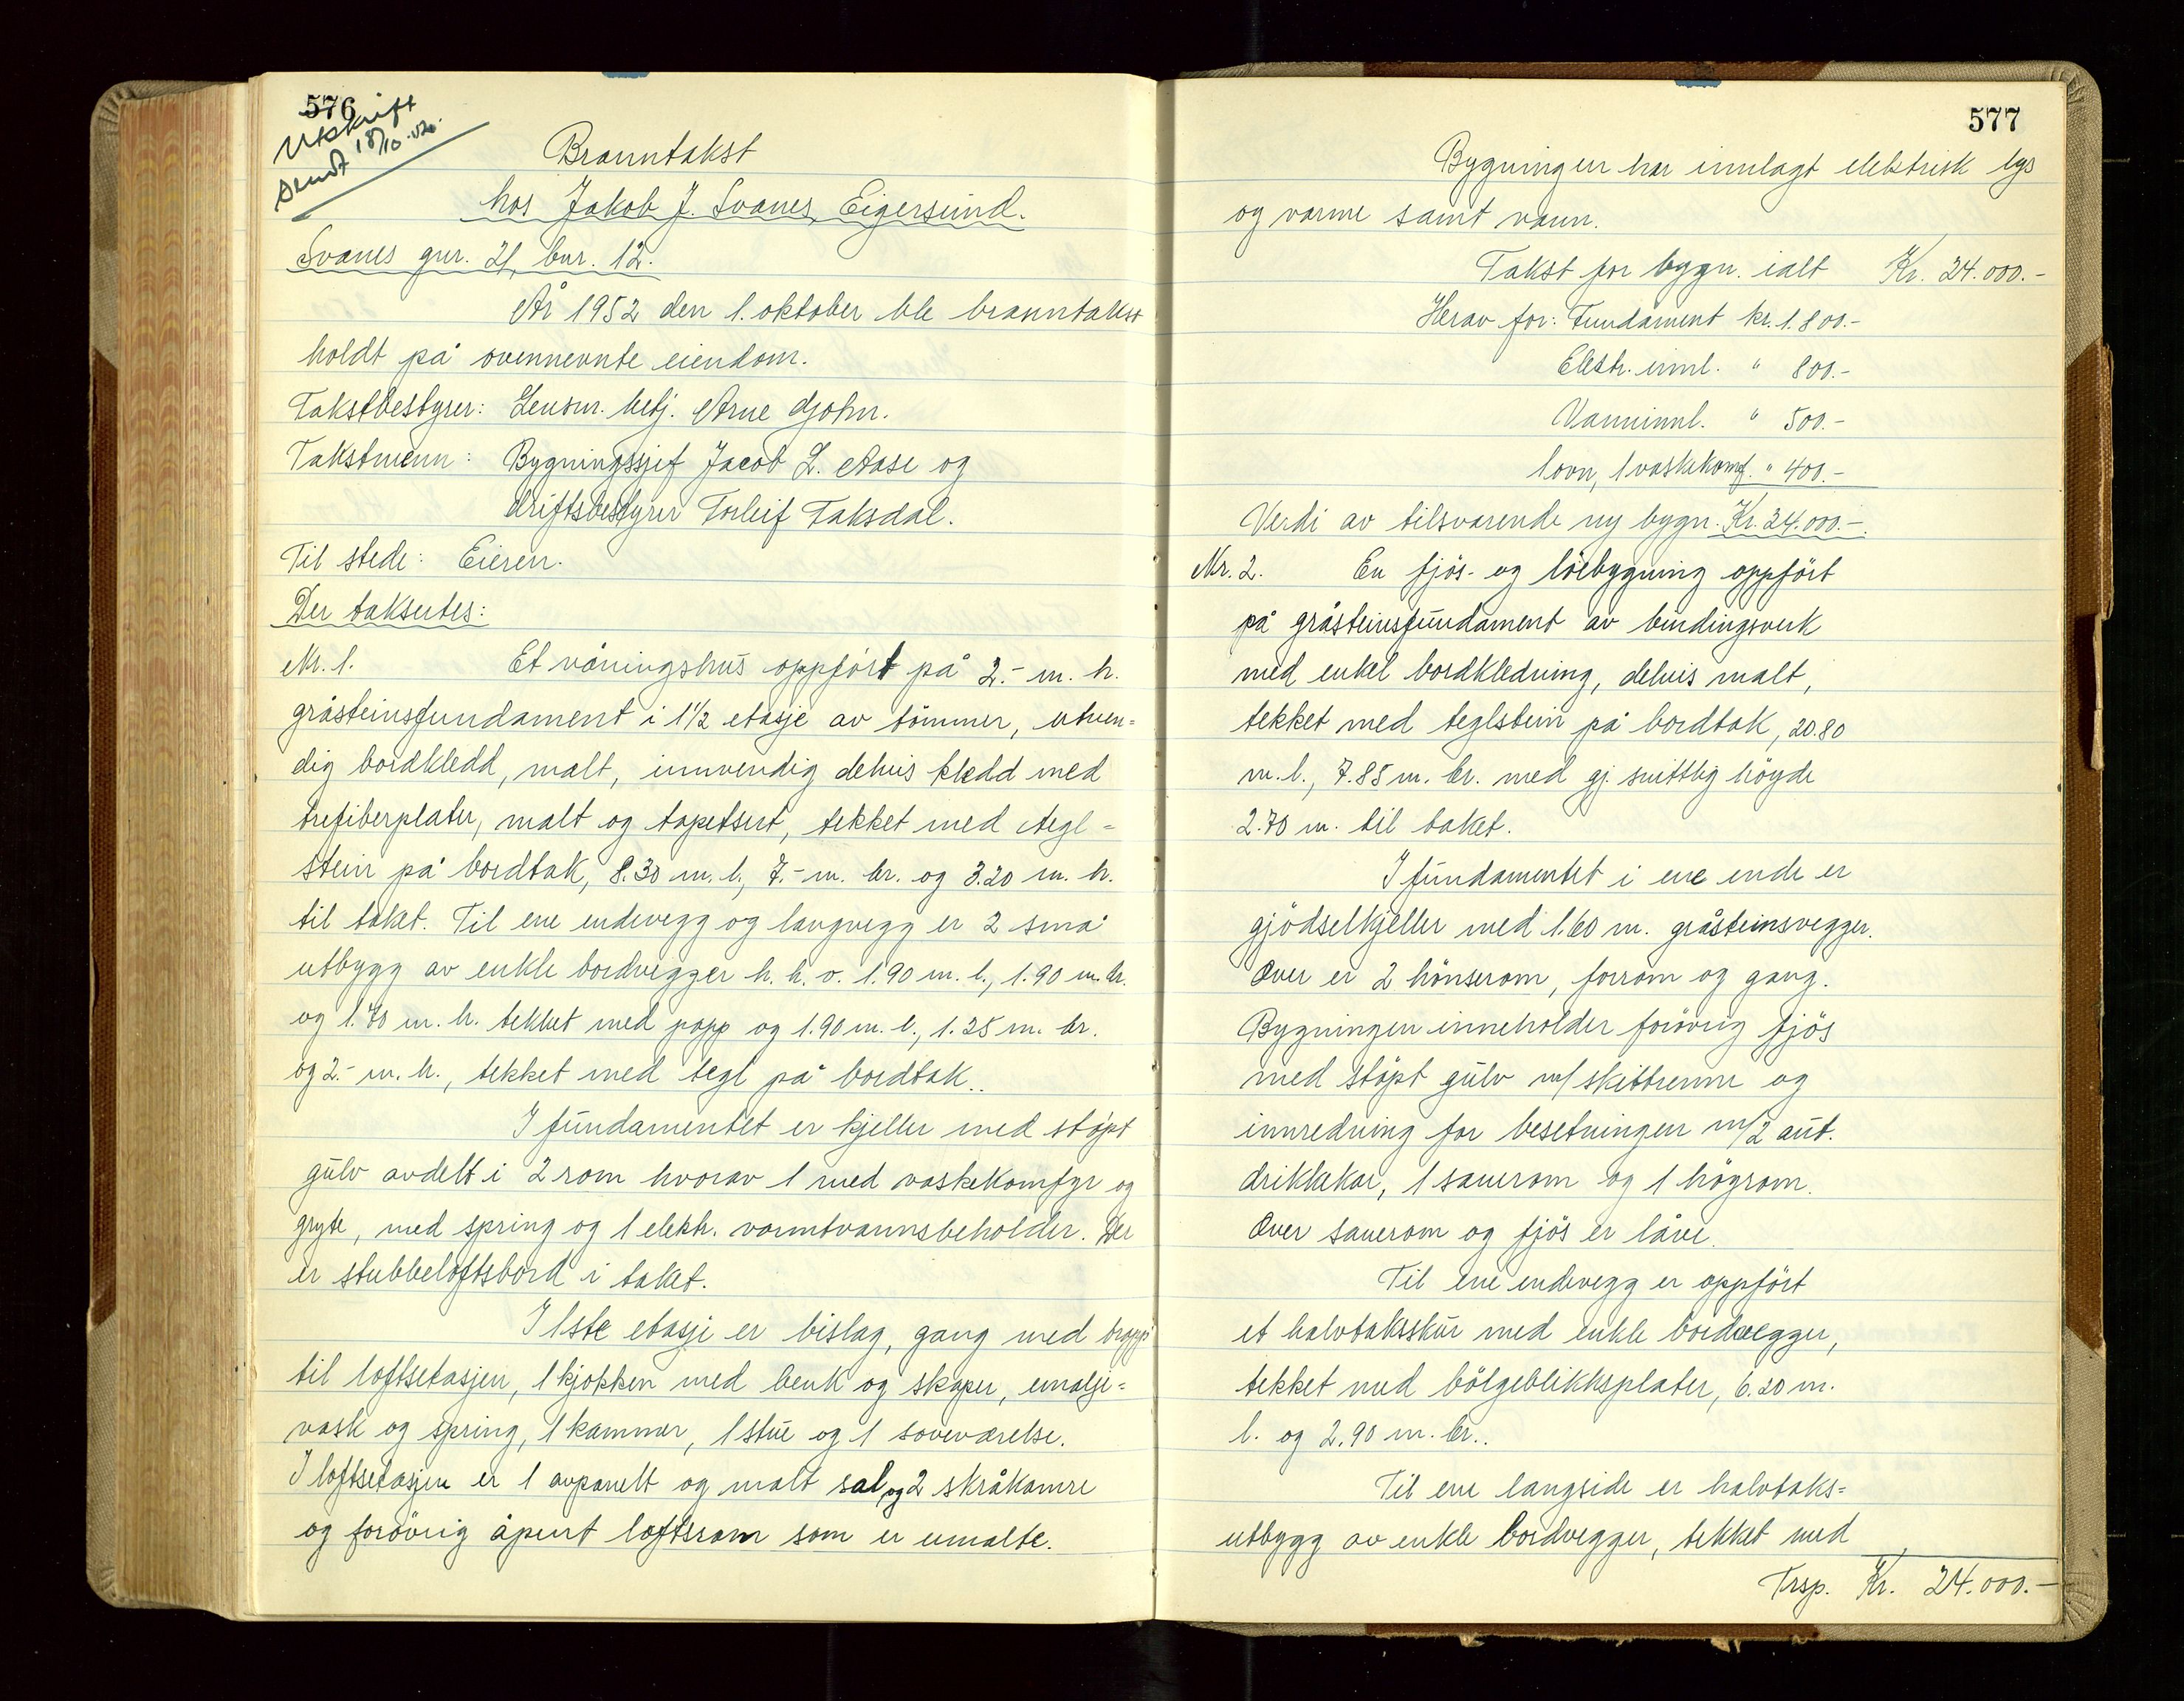 576
Utskrift
sendt 18/10.52.
Branntakst
hos Jakob J. Svanes, Eigersund.
Svanes gnr. 21, bnr. 12.
År 1952 den 1. oktober ble branntakst
holdt på ovennevnte eiendom.
Takstbestyrer: Lensm. betj. Arne Gjohn.
Takstmenn: Bygningssjef Jacob L. Aase og
driftsbestyrer Torleif Taksdal.
Til stede: Eieren.
Der taksertes:
Nr. 1. Et våningshus oppført på 2.- m. h.
gråsteinsfundament i 1 1/2 etasje av tömmer, utven=
dig bordkledd, malt, innvendig delvis kledd med
trefiberplater, malt og tapetsert, tekket med tegl=
stein på bordtak, 8.30 m. l., 7.- m. br. og 3.20 m. h.
til taket. Til ene endevegg og langvegg er 2 små
utbygg av enkle bordvegger h. h. v. 1.90 m. l., 1.90 m. br.
og 1.70 m. h. tekket med papp og 1.90 m. l., 1.25 m. br.
og 2.- m. h., tekket med tegl på bordtak..
I fundamentet er kjeller med støpt
gulv avdelt i 2 rom hvorav 1 med vaskekomfyr og
gryte, med spring og 1 elektr. varmtvannsbeholder. Der
er stubbeloftsbord i taket.
I 1ste etasje er bislag, gang med trapp
til loftsetasjen, 1 kjøkken med benk og skaper, emalje=
vask og spring, 1 kammer, 1 stue og 1 soveværelse.
I loftsetasjen er 1 avpanelt og malt sal og 2 skråkamre
og forøvrig åpent loftsrom som er umalte.
577
Bygningen har innlagt elektrisk lys
og varme samt vann.
Takst for bygn. ialt Kr. 24.000.-
Herav for: Fundament kr. 1.800.-
Elektr. innl. " 800.-
Vanninnl. " 500.-
1 ovn, 1 vaskekomf. " 400.-
Verdi av tilsvarende ny bygn. Kr. 34.000.-
Nr. 2. En fjös- og löebygning oppfört
på gråsteinsfundament av bindingsverk
med enkel bordkledning, delvis malt,
tekket med teglstein på bordtak, 20.80
m. l., 7.85 m. br. med gj. snittlig höyde
2.70 m. til taket.
I fundamentet i ene ende er
gjödselkjeller med 1.60 m. gråsteinsvegger.
Over er 2 hönserom, forrom og gang.
Bygningen inneholder forövrig fjös
med støpt gulv m/ skittrenne og
innredning for besetningen m/2 aut.
drikkekar, 1 sauerom og 1 högrom.
Over sauerom og fjös er låve.
Til ene endevegg er oppfört
et halvtaksskur med enkle bordvegger,
tekket med bölgeblikksplater, 6.20 m.
l. og 2.90 m. br..
Til ene langside er halvtaks=
utbygg av enkle bordvegger, tekket med
Trsp. Kr. 24.000.-